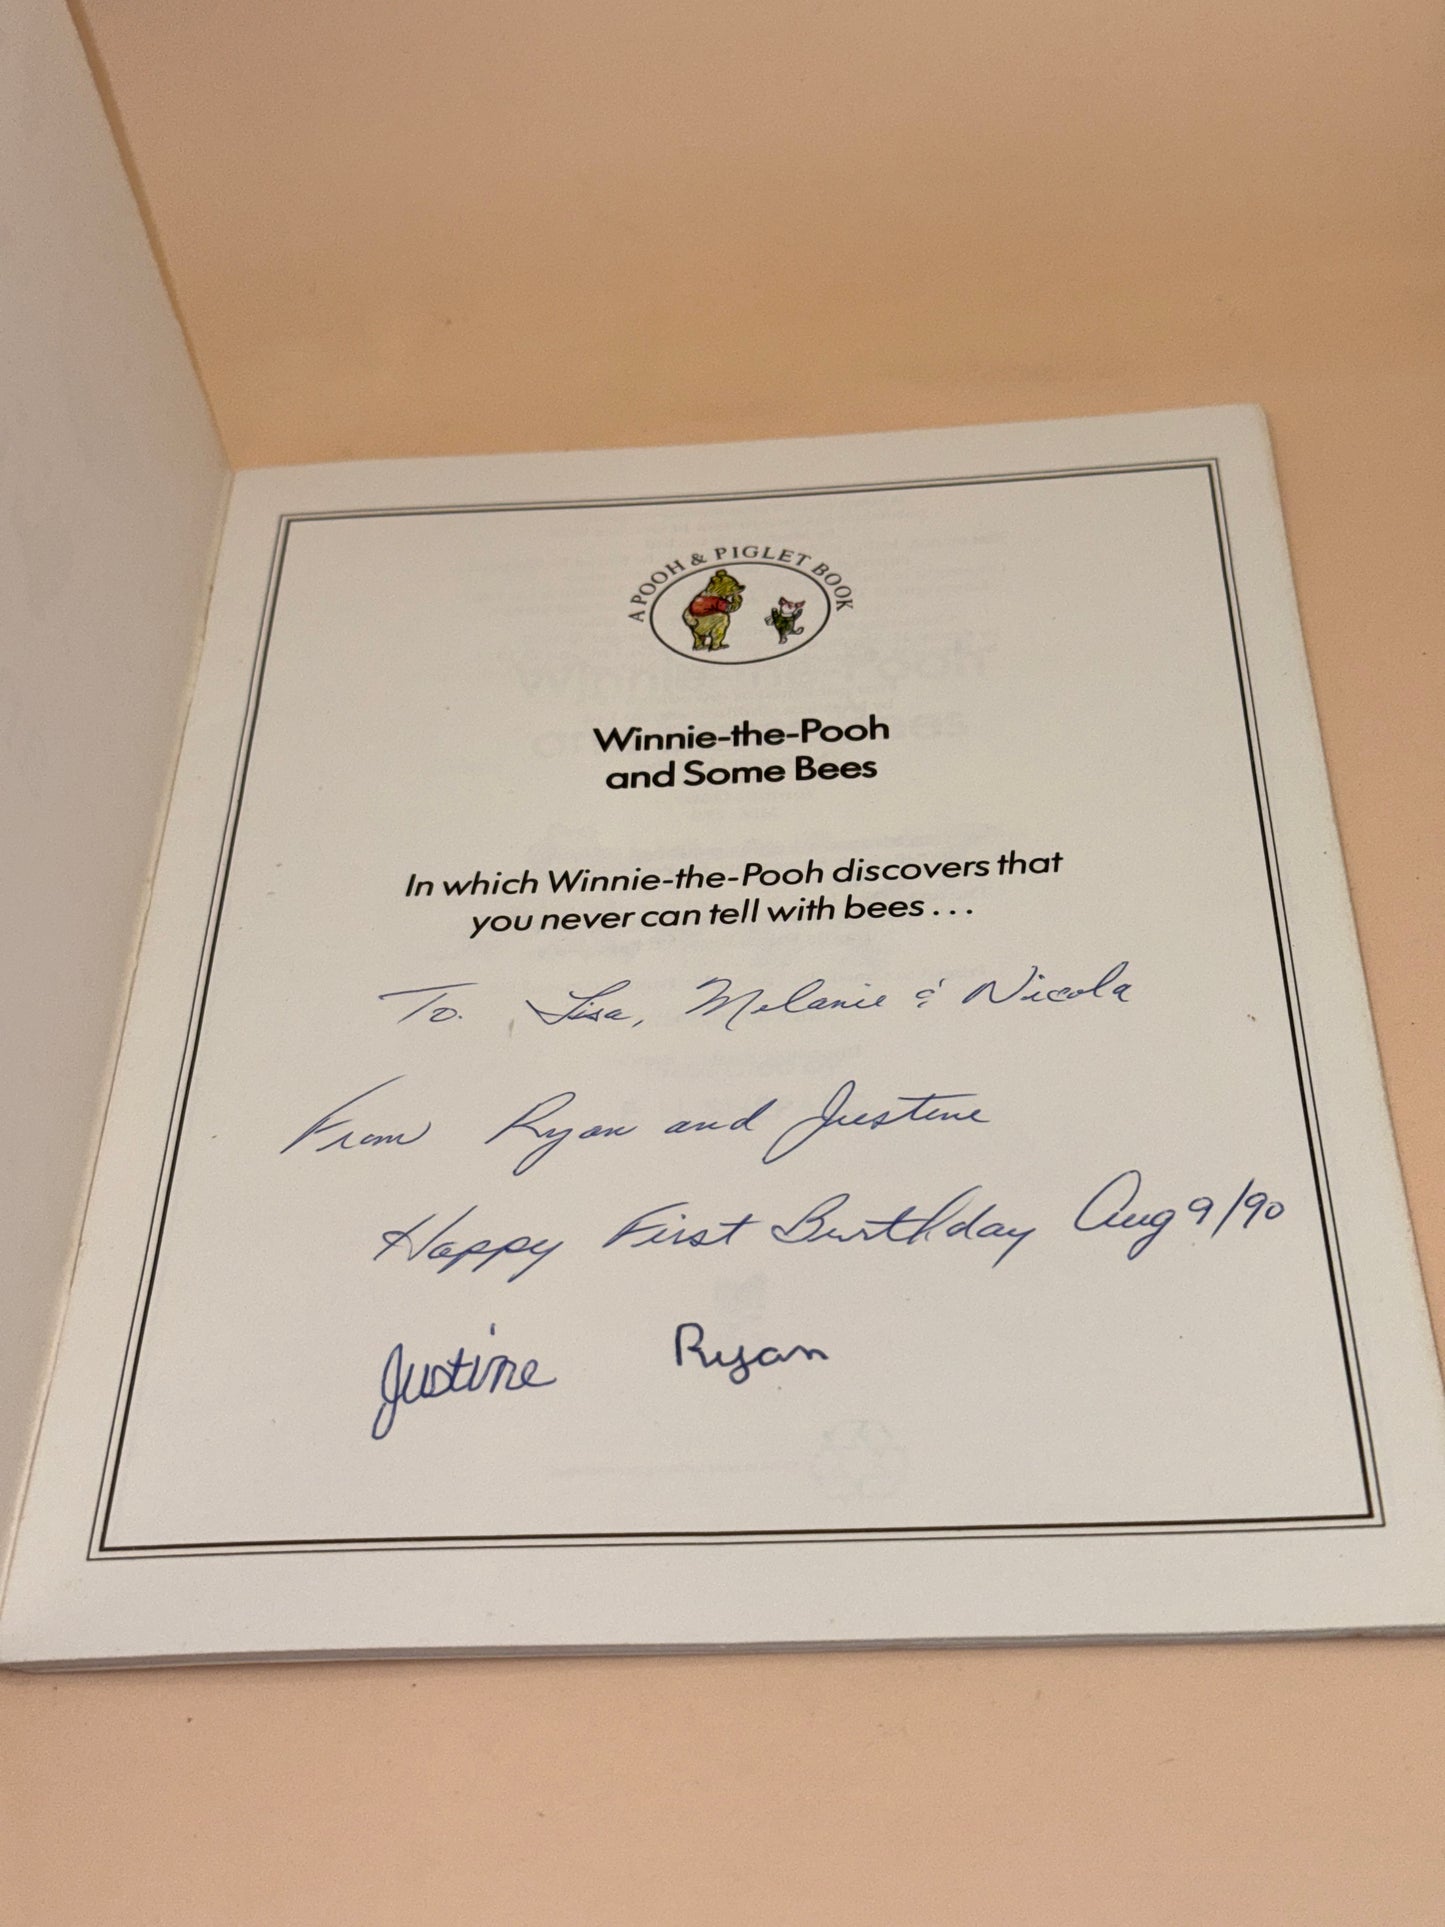 A POOH & PIGLET BOOK
Winnie-the-Pooh
and Some Bees
In which Winnie-the-Pooh discovers that
you never can tell with bees...
To. Lisa, Melanie & Nicola
From Ryan and Justine
Happy First Birthday Aug 9/90
Justine Ryan